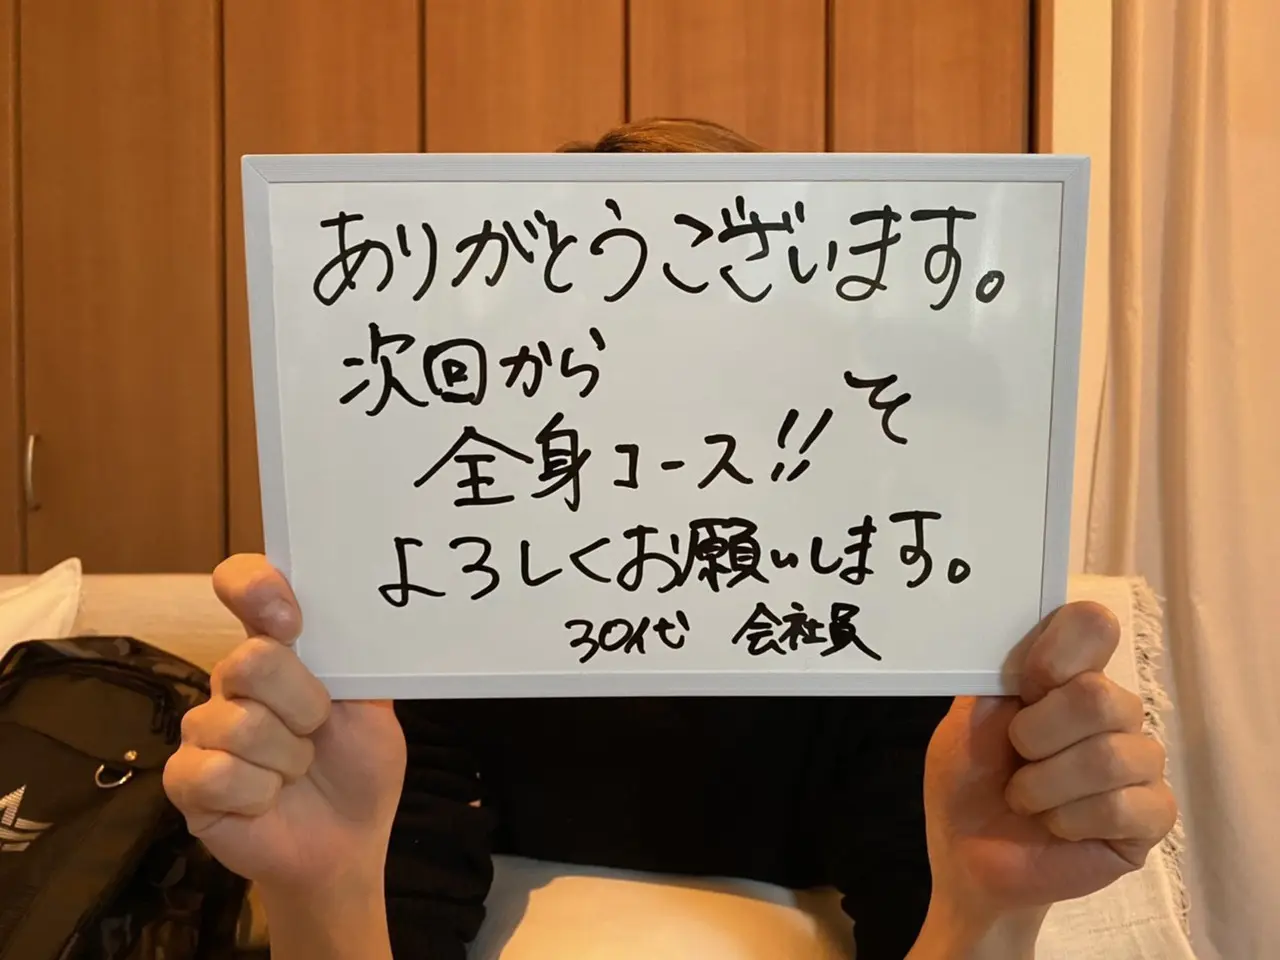 ありがとうございます。
次回から
全身コース!! そ
よろしくお願いします。
30代 会社員